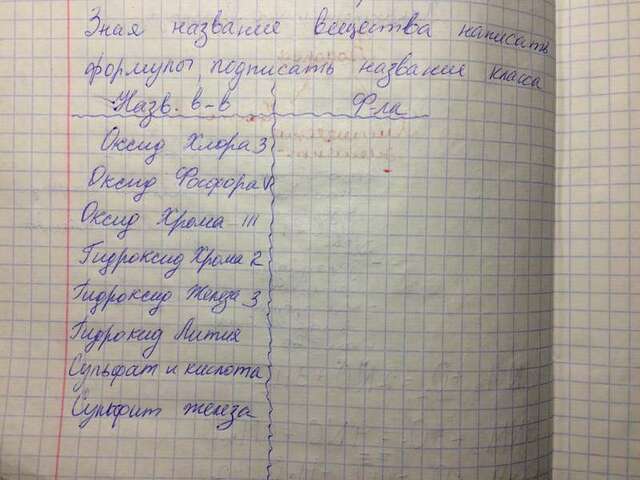 Зная название вещества написать
формулы подписать название класса
Назв. в-в Ф-ла
Оксид Хлора 3
Оксид Фосфора V
Оксид Хрома III
Гидроксид Хрома 2
Гидроксид 3
Гидроксид Лития
Сульфат и кислота
Сульфит